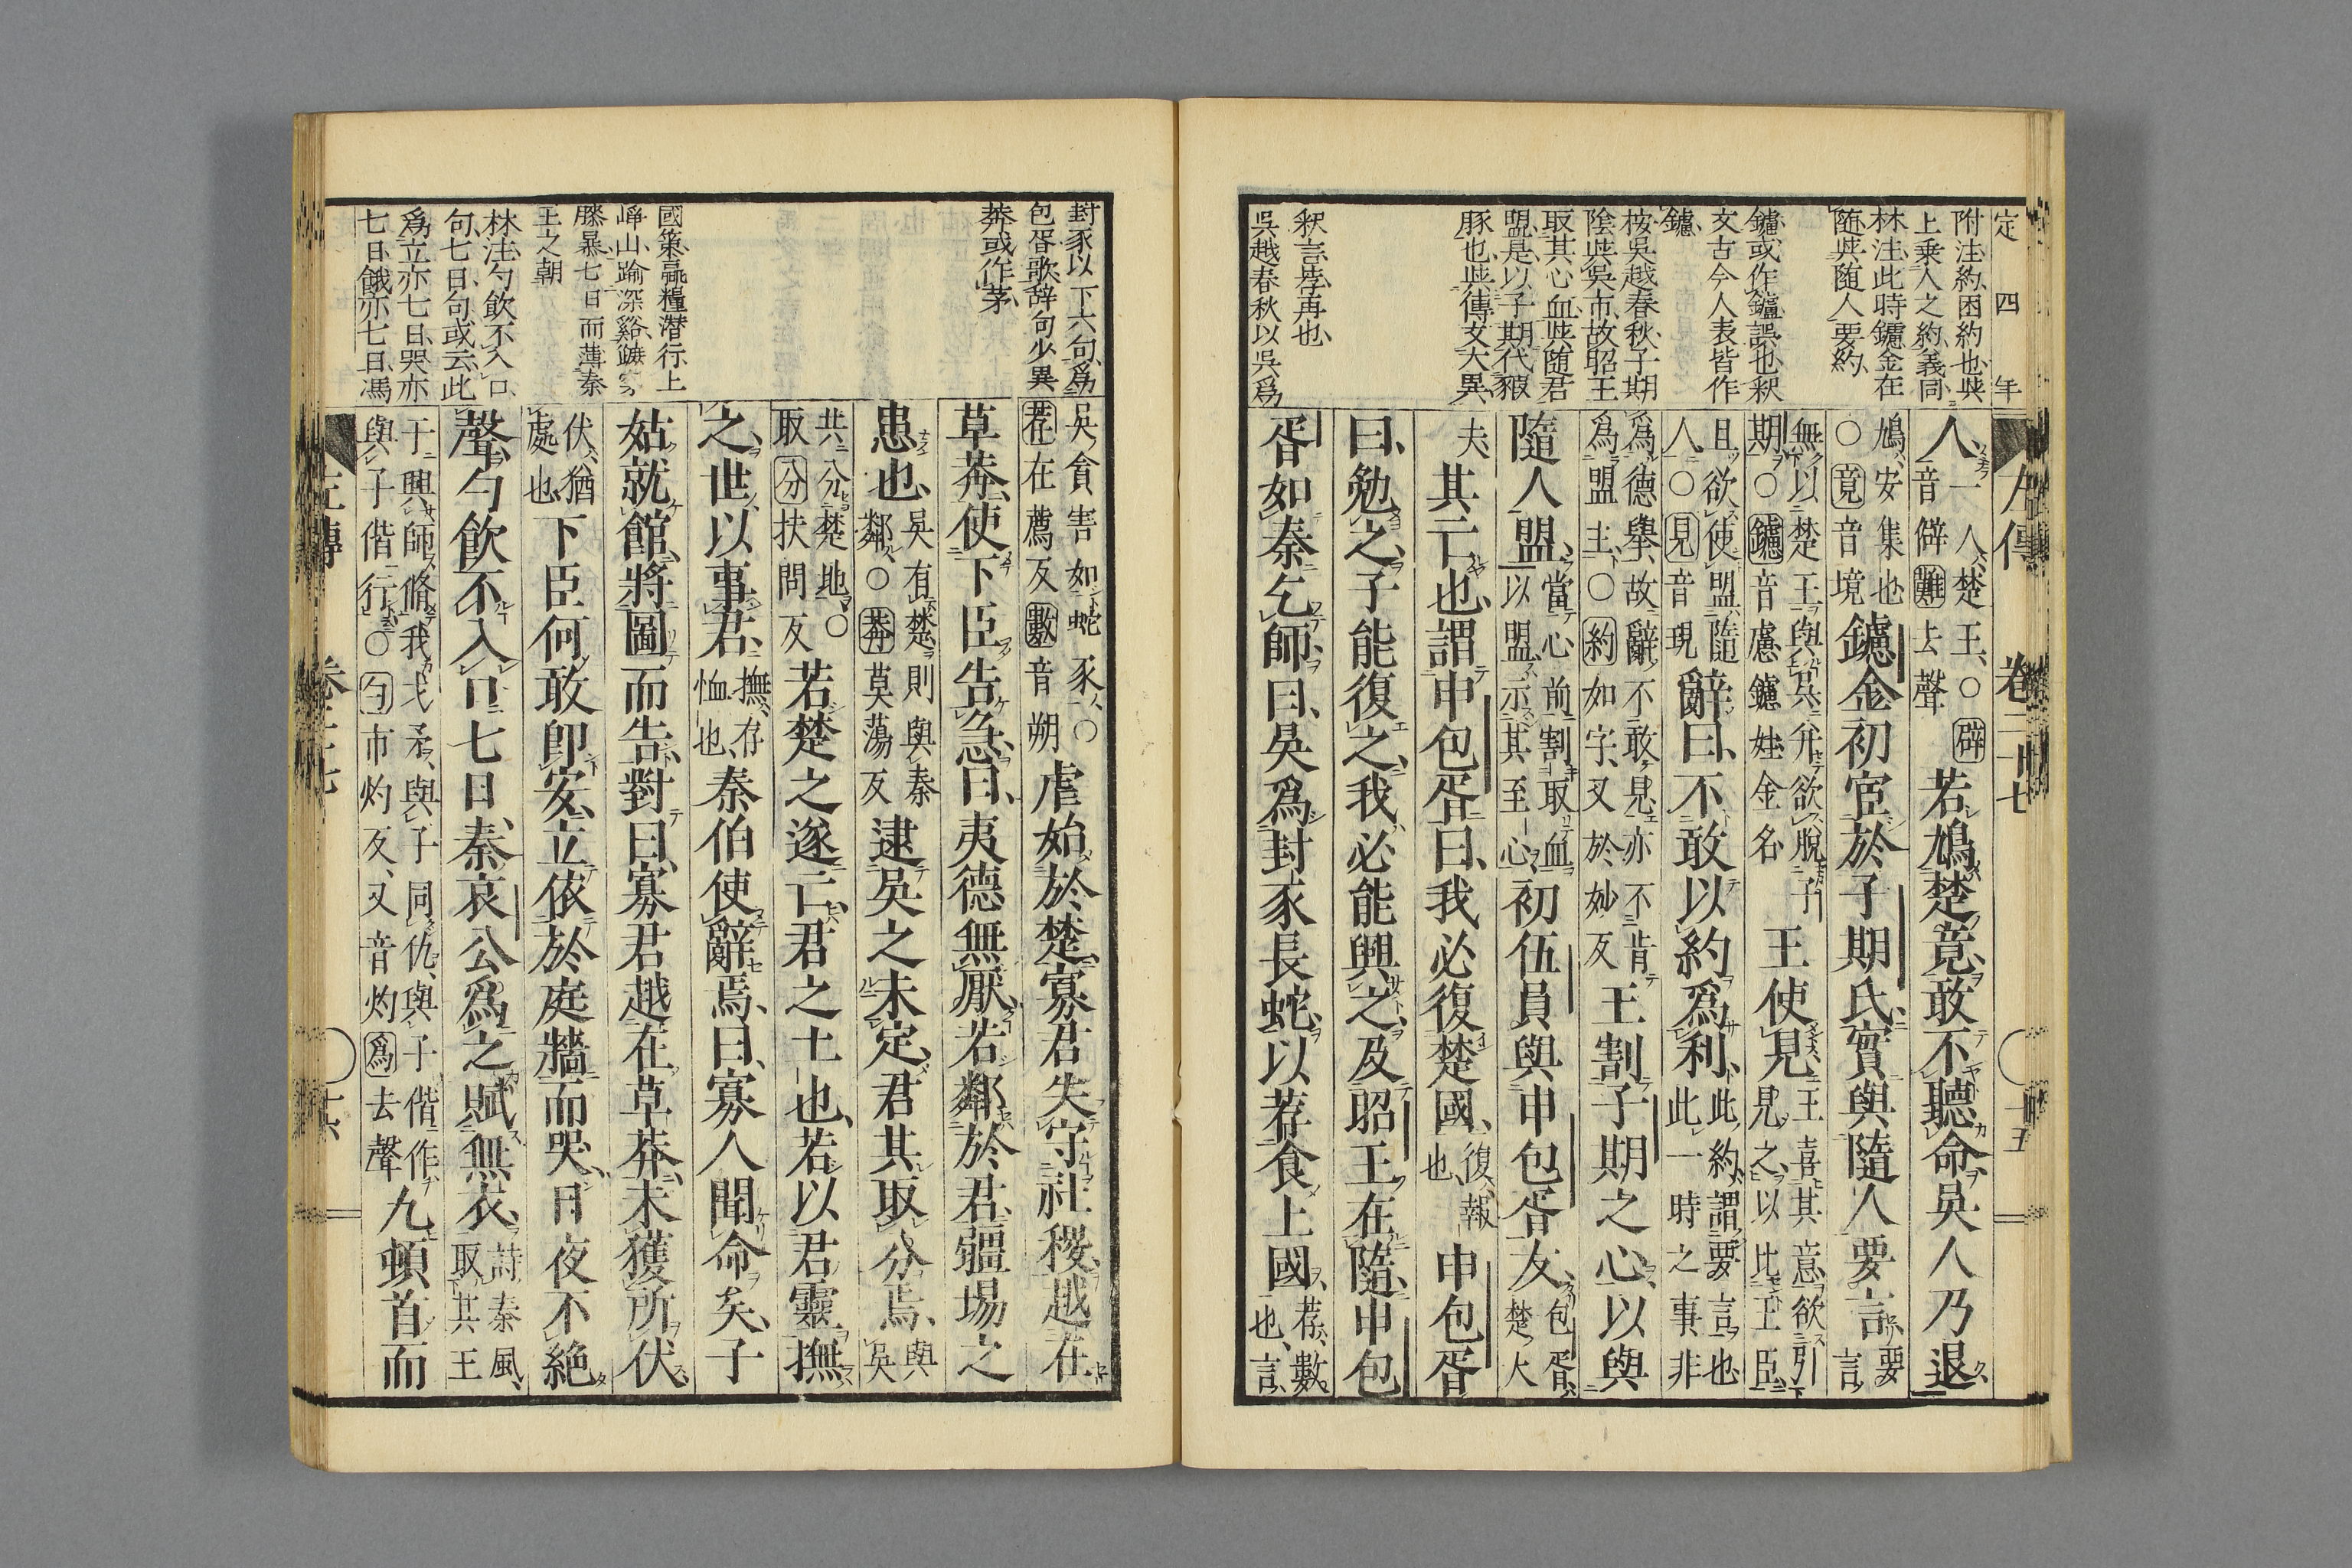 定四年
附注約困約也與
上乗人之約義同
林注此時鑢金在
随與随人要約
鑢或作鑪誤也釈
文古今人表皆作
鑢
按吳越春秋子期
陰與吳市故昭王
取其心血與随君
盟是以子期代豭
豚也與傳文大異
釈言荐再也
吳越春秋以吳爲
左傳 卷二十七 十五
人一人楚王○辟音僻難去聲若鳩楚竟敢不聽命吳人乃退
鳩安集也○竟音境鑢金初宦於子期氏實與隨人要言要言
無以楚王與吳幷欲脫子期○鑢音慮鑢姓金名王使見王喜其意欲引見之以比王臣
且欲使盟隨人○見音現辭曰不敢以約爲利此約謂要言也此一時之事非
爲德舉故辭不敢見亦不肯爲盟主○約如字又於妙反王割子期之心以與
隨人盟當心前割取血以盟示其至心初伍員與申包胥友包胥楚大
夫其亡也謂申包胥曰我必復楚國復報也申包胥
曰勉之子能復之我必能興之及昭王在隨申包
胥如秦乞師曰吳爲封豕長蛇以荐食上國荐數也言
封豕以下六句爲
包胥歌辞句少異
莽或作茅
國策羸糧潜行上
崢山踰深谿蹠穿
膝暴七日而薄秦
王之朝
林注勺飲不入口
句七日句或云此
爲立亦七日哭亦
七日餓亦七日馮
吳貪害如蛇豕○荐在薦反數音朔虐始於楚寡君失守社稷越在
草莽使下臣告急曰夷德無厭若鄰於君疆埸之
患也吳有楚則與秦鄰○莽莫蕩反逮吳之未定君其取分焉與吳
共分楚地○取分扶問反若楚之遂亡君之土也若以君靈撫
之世以事君撫存恤也秦伯使辭焉曰寡人聞命矣子
姑就館將圖而告對曰寡君越在草莽未獲所伏
伏猶處也下臣何敢卽安立依於庭牆而哭日夜不絶
聲勺飲不入口七日秦哀公爲之賦無衣詩秦風取其王
于興師脩我戈矛與子同仇與子偕作與子偕行○勺市灼反又音灼爲去聲九頓首而
左傳 卷二十七 十六